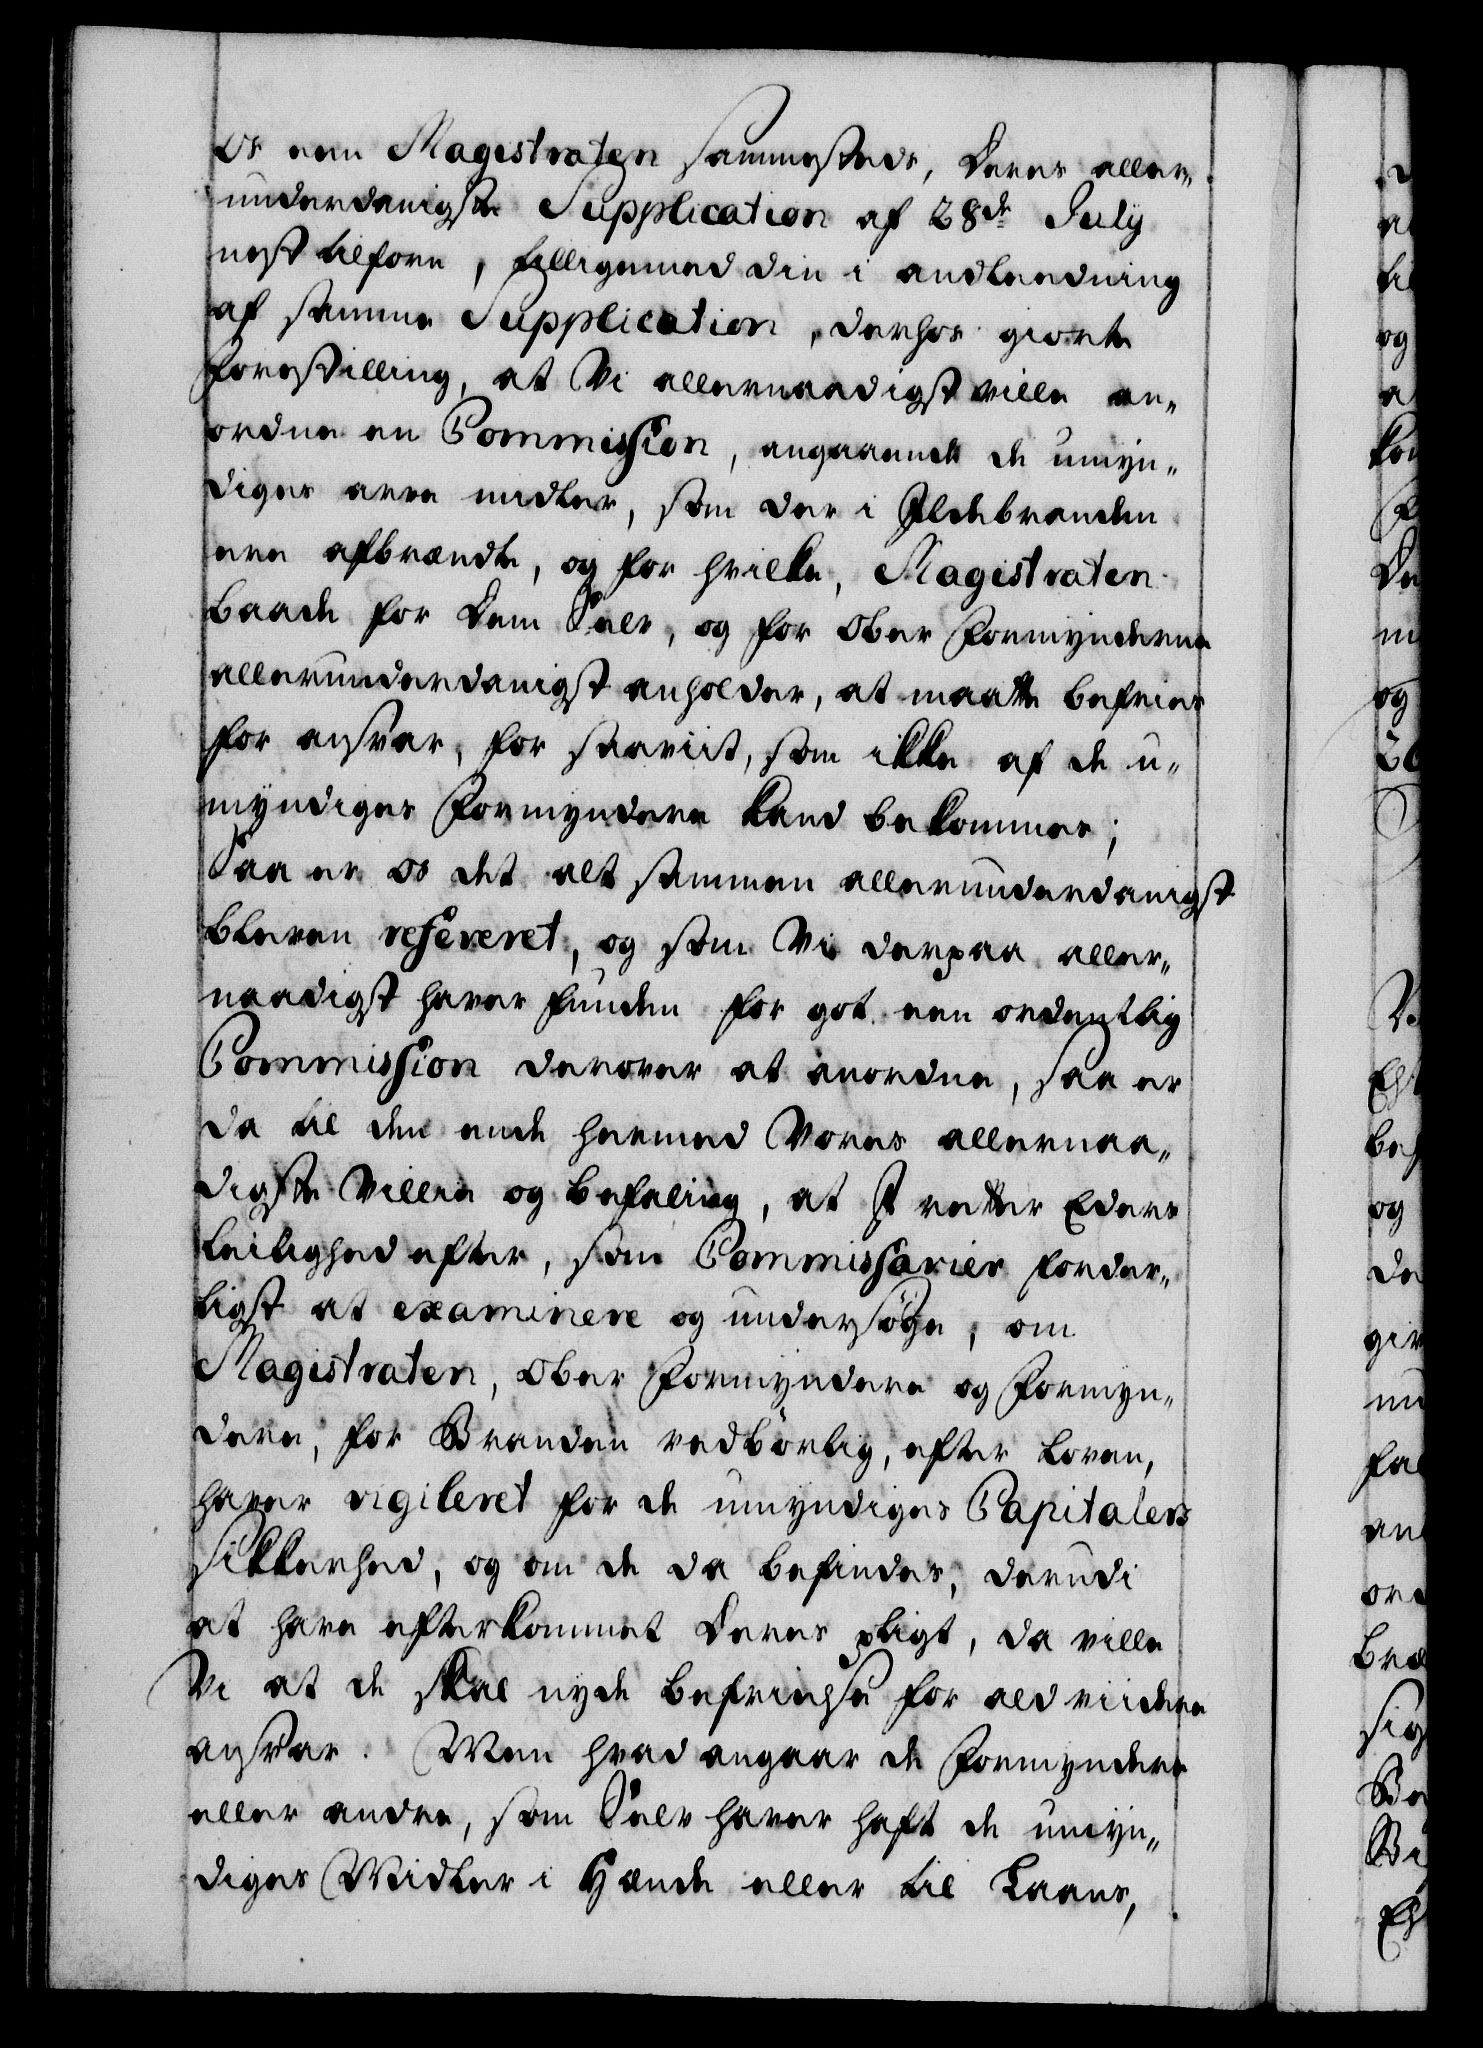 Os een Magistraten sammesteds, Deres aller-
underdanigste Supplication af 28de July
nest tilforn, tilligemed din i andleedning
af samme Supplication, derhos giorte
Forestilling, at Vi allernaadigst ville an-
ordne en Commission, angaaende de umyn-
diges arve midler, som der i Ildebranden
ere afbrændte, og for hvilke, Magistraten
baade for dem Selv, og for Ober Formynderne
allerunderdanigst anholder, at maatte befries
for ansvar, for saaviit, som ikke af de u-
myndiges Formyndere kand bekommes;
Saa er os det alt sammen allerunderdanigst
bleven refereret, og som Vi derpaa aller-
naadigst haver funden for got een ordentlig
Commission derover at anordne, saa er
da til den ende hermed Vores allernaa-
digste Villie og befaling, at I retter Eders
leilighed efter, som Commissarier forder-
ligst at examinere og undersöge, om
Magistraten, Ober Formyndere og Formyn-
dere, for Branden vedbörlig, efter Loven,
haver vigileret for de umyndiges Capitalers
Sikkerhed, og om de da befindes, derudi
at have efterkommet Deres pligt, da ville
Vi at de skal nyde befrielse for ald viidere
ansvar. Men hvad angaar de Formyndere
eller andre, som Selv haver haft de umyn-
diges Midler i Hænde eller til Laans,